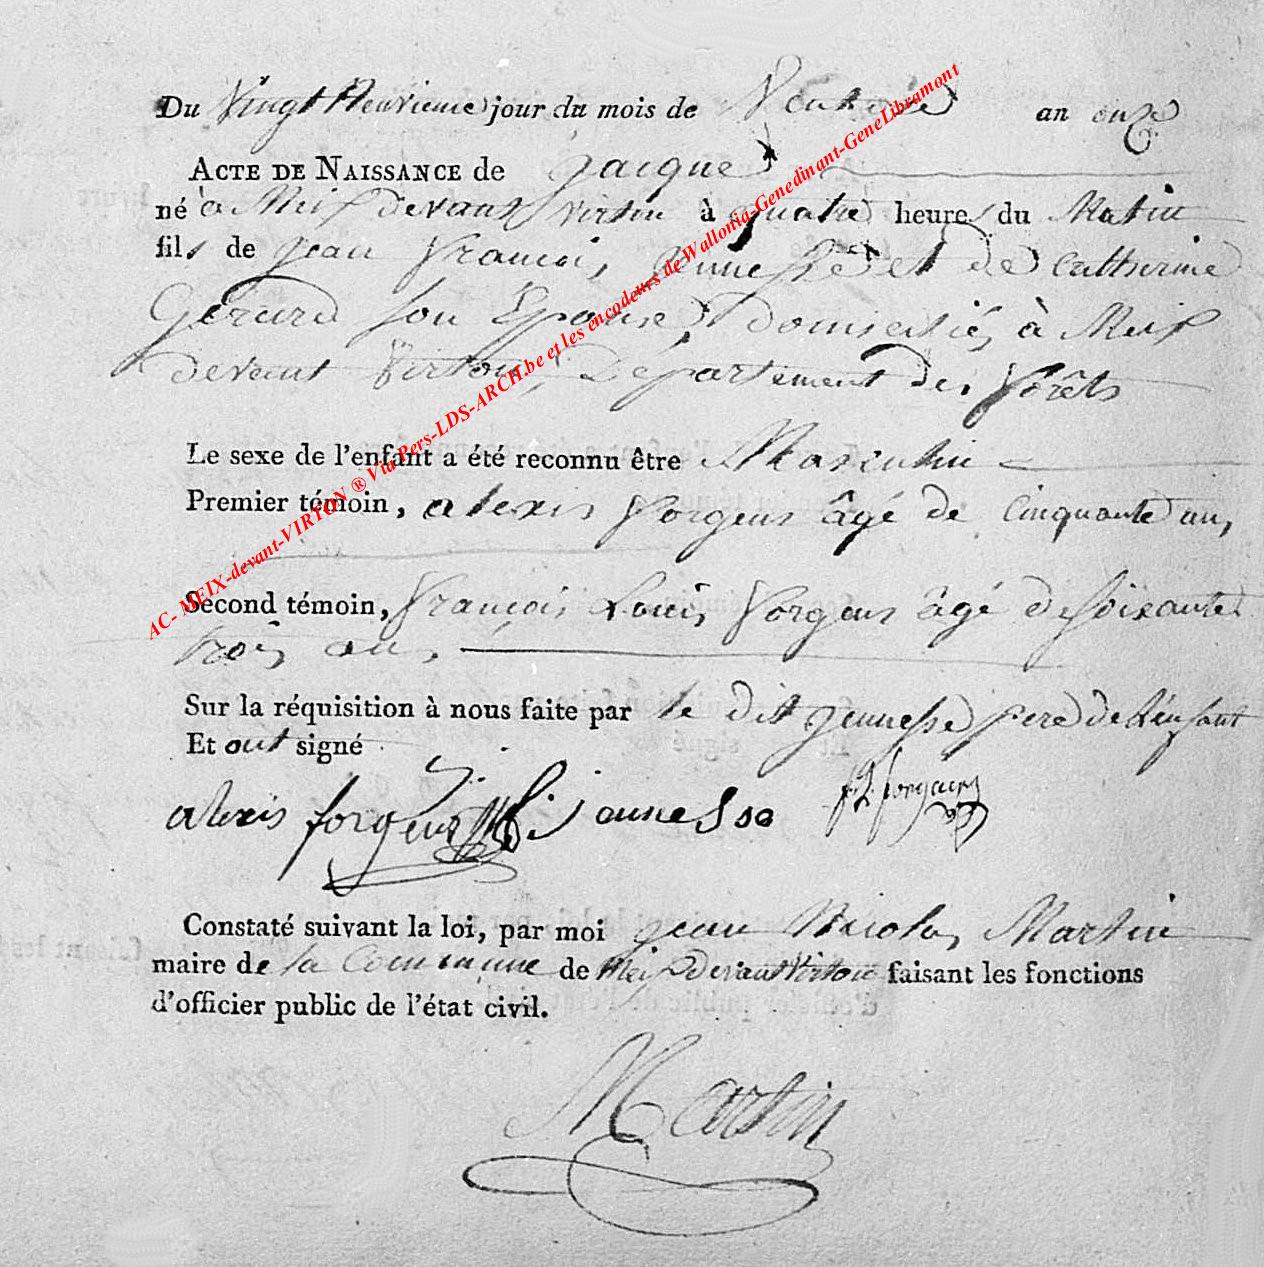 Du Vingt Neuvieme jour du mois de Ventose an onze
ACTE DE NAISSANCE de Jacque
né à Meix devant virton à quatre heures du Matin
fils de Jean François Jeunesse et de Catherine
Gérard son Epouse, Domiciliés à Meix
devant Virton, Département des Forêts
Le sexe de l'enfant a été reconnu être Masculin
Premier témoin, alexis Forgeur âgé de Cinquante ans,
Second témoin, François Louis Forgeur âgé de soixante
trois ans,
Sur la réquisition à nous faite par le dit Jeunesse pere de l'enfant
Et ont signé
alexis forgeur jeunesse f. L. forgeur
Constaté suivant la loi, par moi Jean Nicolas Martin
maire de la Commune de Meix devant Virton faisant les fonctions
d'officier public de l'état civil.
Martin
AC- MEIX-devant-VIRTON ® Via Pers-LDS-ARCH.be et les encodeurs de Wallonia-Genedinant-GeneLibramont